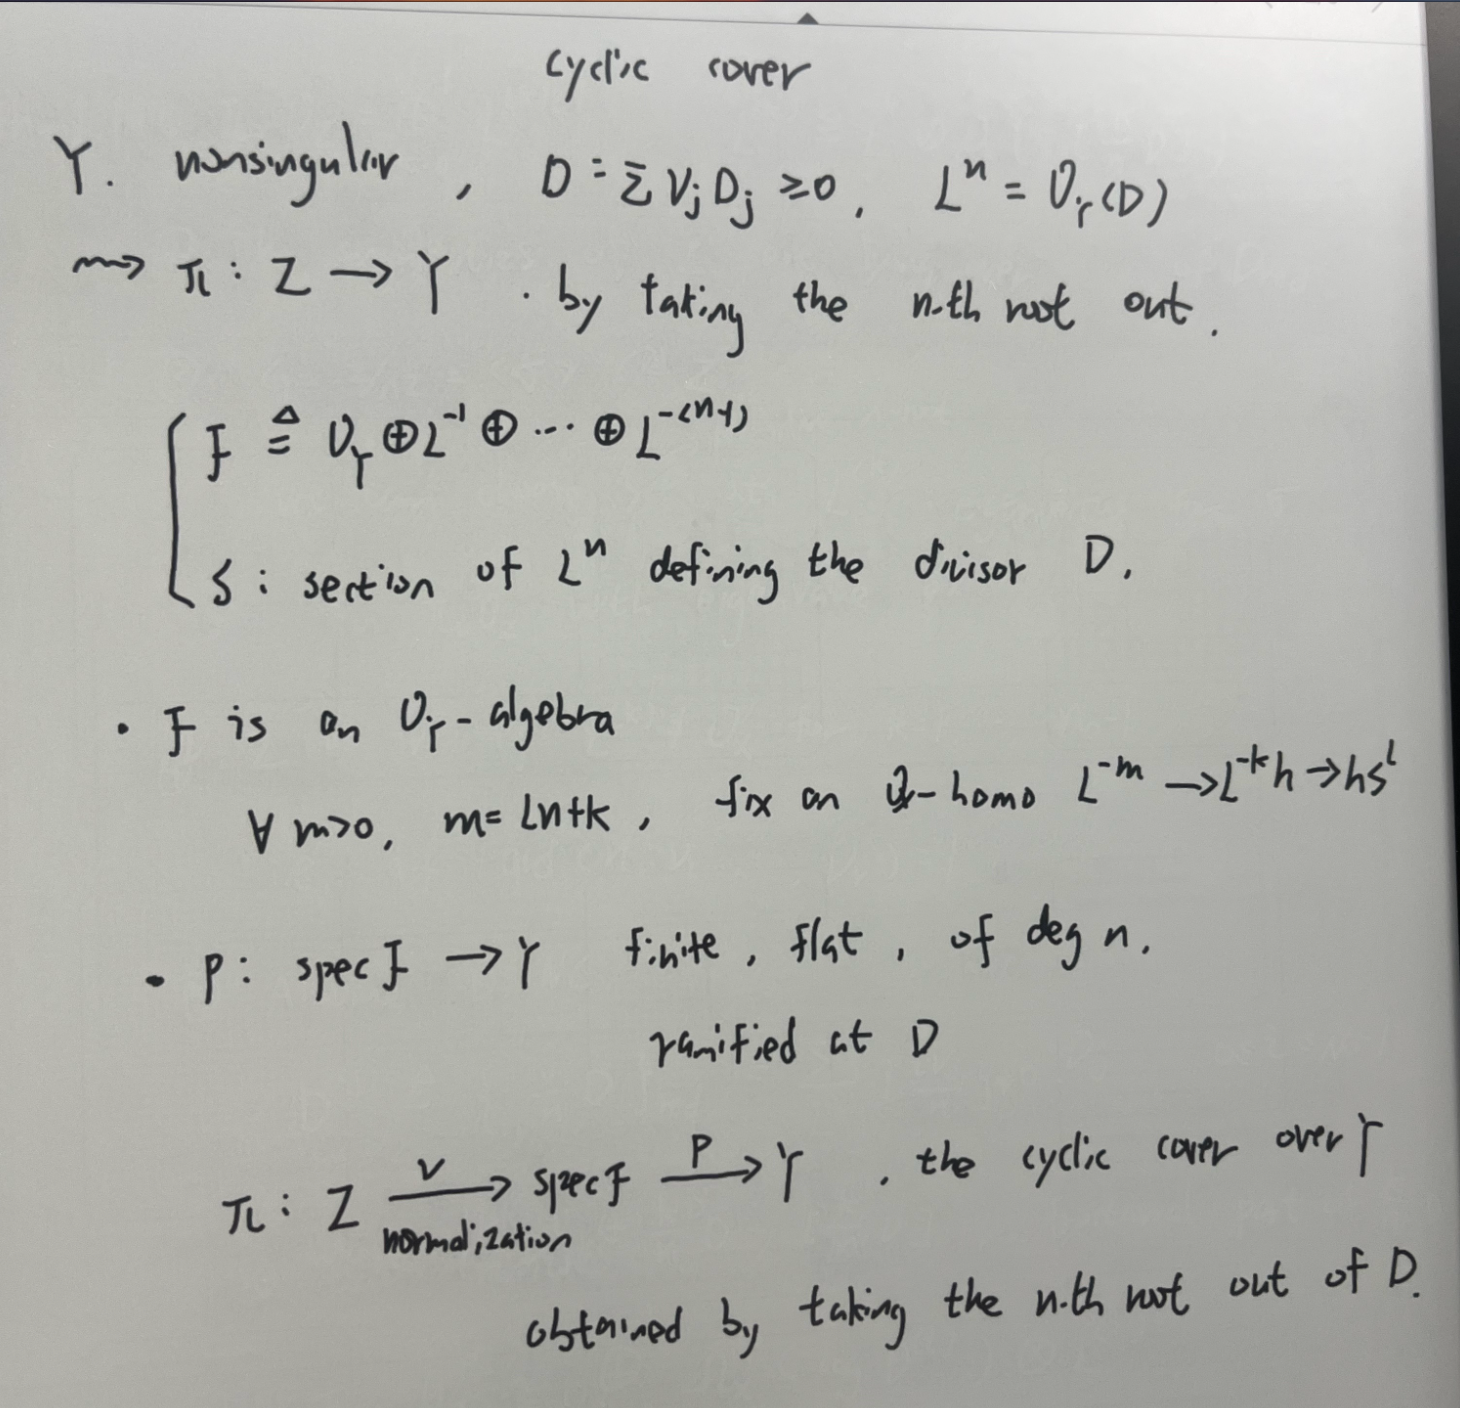 cyclic cover
Y. nonsingular, D = Σ ν_j D_j ≥ 0, L^n = O_Y(D)
⇝ π: Z → Y. by taking the n-th root out.
F ≜ O_Y ⊕ L^{-1} ⊕ ... ⊕ L^{-(n-1)}
S: section of L^n defining the divisor D.
• F is an O_Y-algebra
∀ m>0, m = ln+k, fix an O_Y-homo L^{-m} → L^{-k} h → hs^l
• P: spec F → Y finite, flat, of deg n.
ramified at D
π: Z —ν→ spec F —P→ Y, the cyclic cover over Y
normalization
obtained by taking the n-th root out of D.